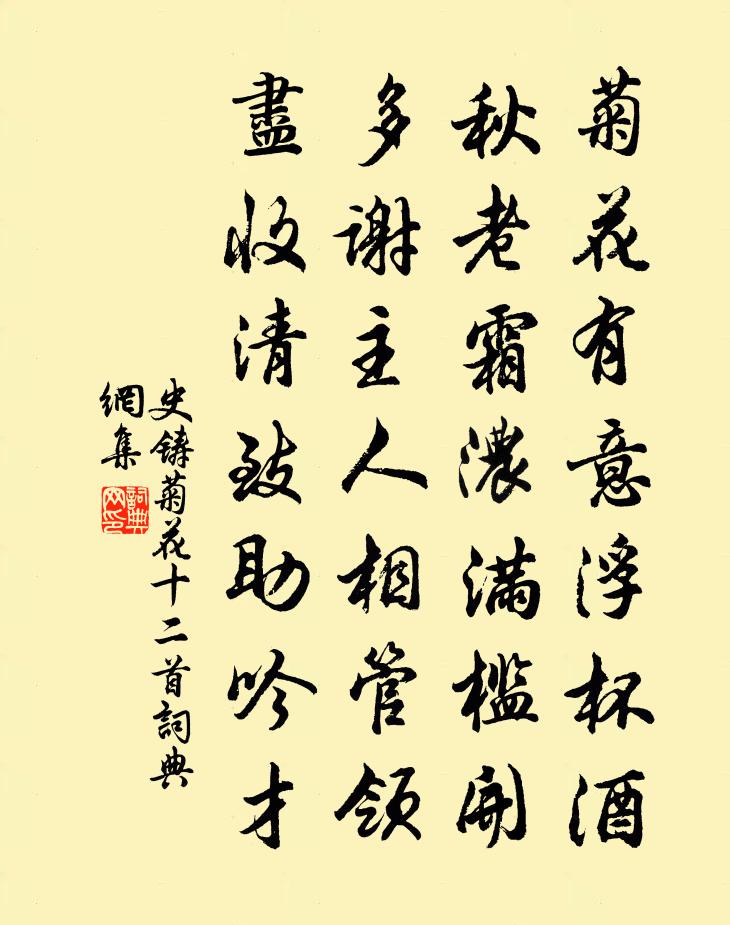 菊花有意浮杯酒
秋老霜濃滿檻開
多謝主人相管領
盡收清致助吟才
史鑄菊花十二首詞典
網集
詞典
网印